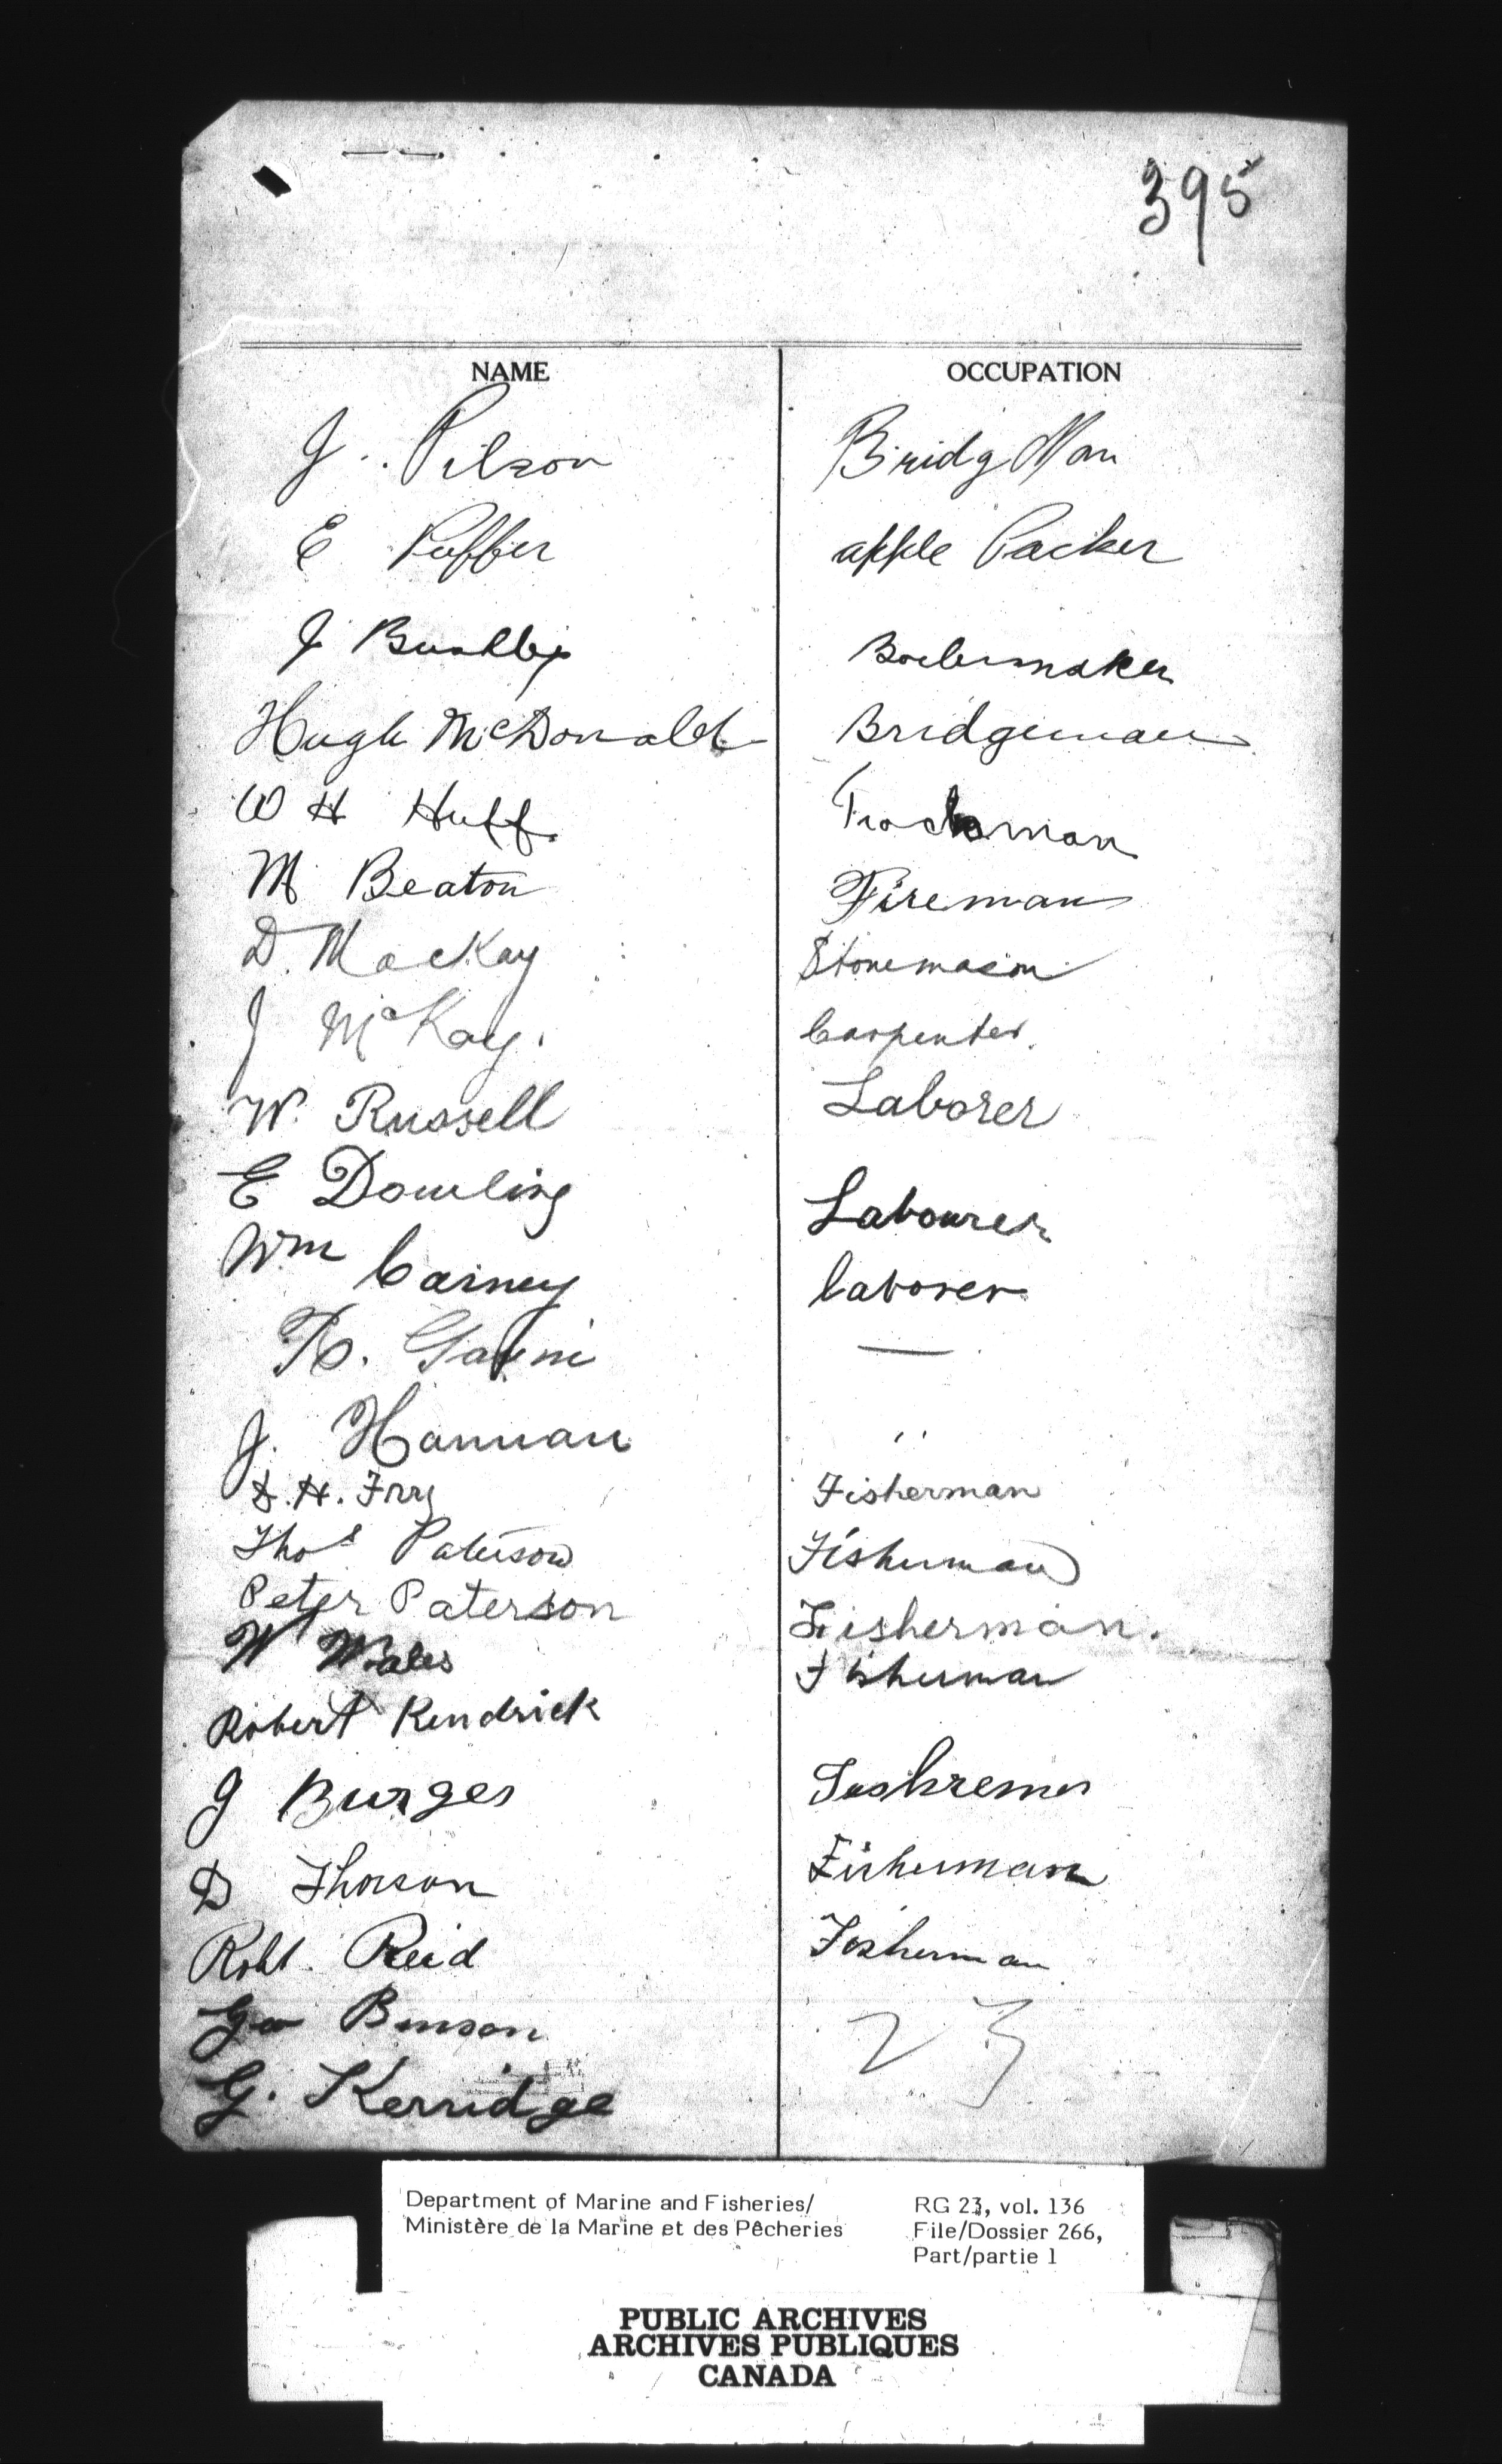 395
NAME OCCUPATION
J. Pilson Bridg Man
E Puffer apple Packer
J Boilermaker
Hugh McDonald Bridgeman
W H Huff Trackman
M Beaton Fireman
D. MacKay Stonemason
J McKay. Carpenter.
W. Russell Laborer
E Dowling Labourer
Wm Carney laborer
Gavin —
J. Hannan "
D. H. Frry Fisherman
Thos Paterson Fisherman
Peter Paterson Fisherman.
W Wales Fisherman
Robert Kendrick
J Burges
D Thorson Fisherman
Robt. Reid Fisherman
Geo Benson 23
G. Kerridge
Department of Marine and Fisheries/ RG 23, vol. 136
Ministère de la Marine et des Pêcheries File/Dossier 266,
Part/partie 1
PUBLIC ARCHIVES
ARCHIVES PUBLIQUES
CANADA